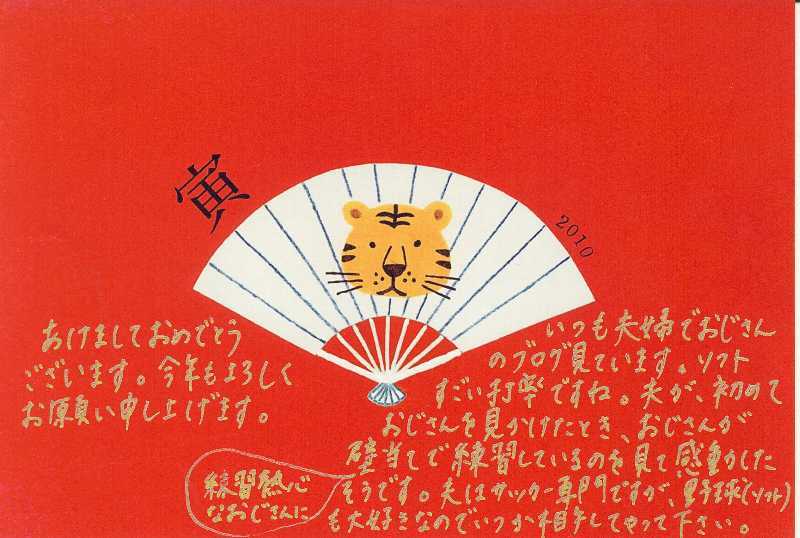 寅
2010
あけましておめでとう
ございます。今年もよろしく
お願い申し上げます。
いつも夫婦でおじさん
のブログ見ています。ソフト
すごい打率ですね。夫が、初めて
おじさんを見かけたとき、おじさんが
壁当てで練習しているのを見て感動した
そうです。夫はサッカー専門ですが、野球(ソフト)
も大好きなのでいつか相手してやって下さい。
練習熱心
なおじさんに